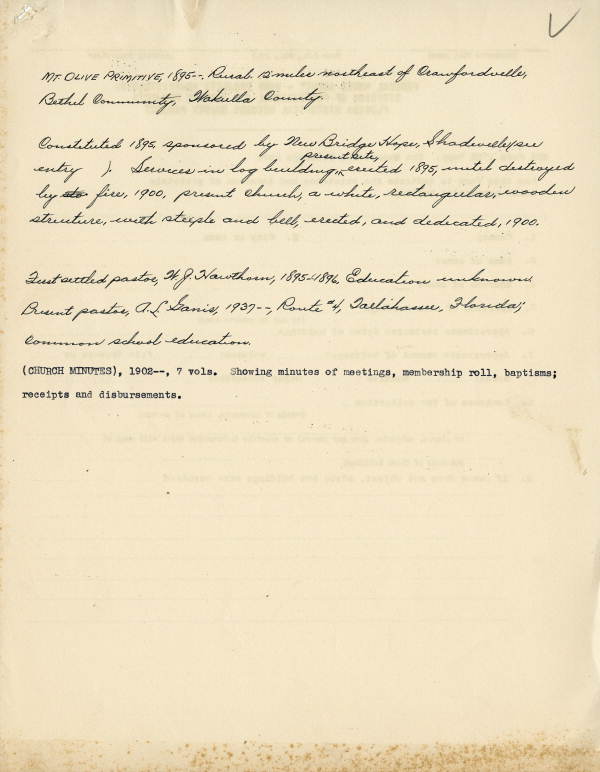 MT. OLIVE PRIMITIVE, 1895--. Rural. 12 miles northeast of Crawfordville,
Bethel Community, Wakulla County.
Constituted 1895, sponsored by New Bridge Hope, Shadeville (see
entry ). Services in log building, present site, erected 1895, until destroyed
by fire, 1900, present church, a white, rectangular, wooden
structure, with steeple and bell, erected, and dedicated, 1900.
First settled pastor, W. J. Hawthorn, 1895-1896. Education unknown.
Present pastor, A. L. Ganis, 1937--, Route #4, Tallahassee, Florida;
common school education.
(CHURCH MINUTES), 1902--, 7 vols. Showing minutes of meetings, membership roll, baptisms;
receipts and disbursements.